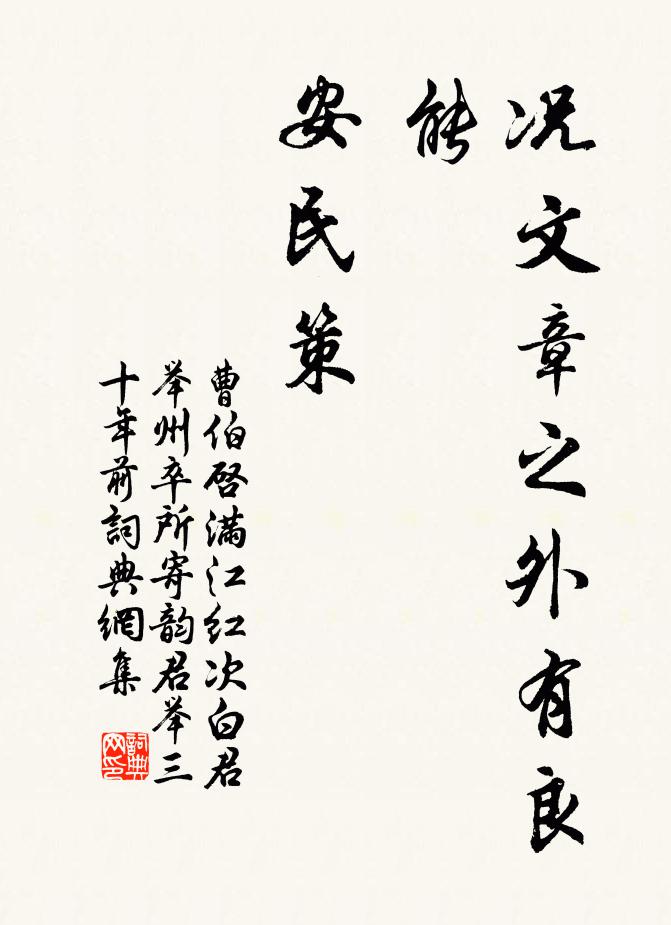 况文章之外有良
能
安民策
曹伯啓满江红次白君
举州卒所寄韵君举三
十年前詞典網集
詞典網印